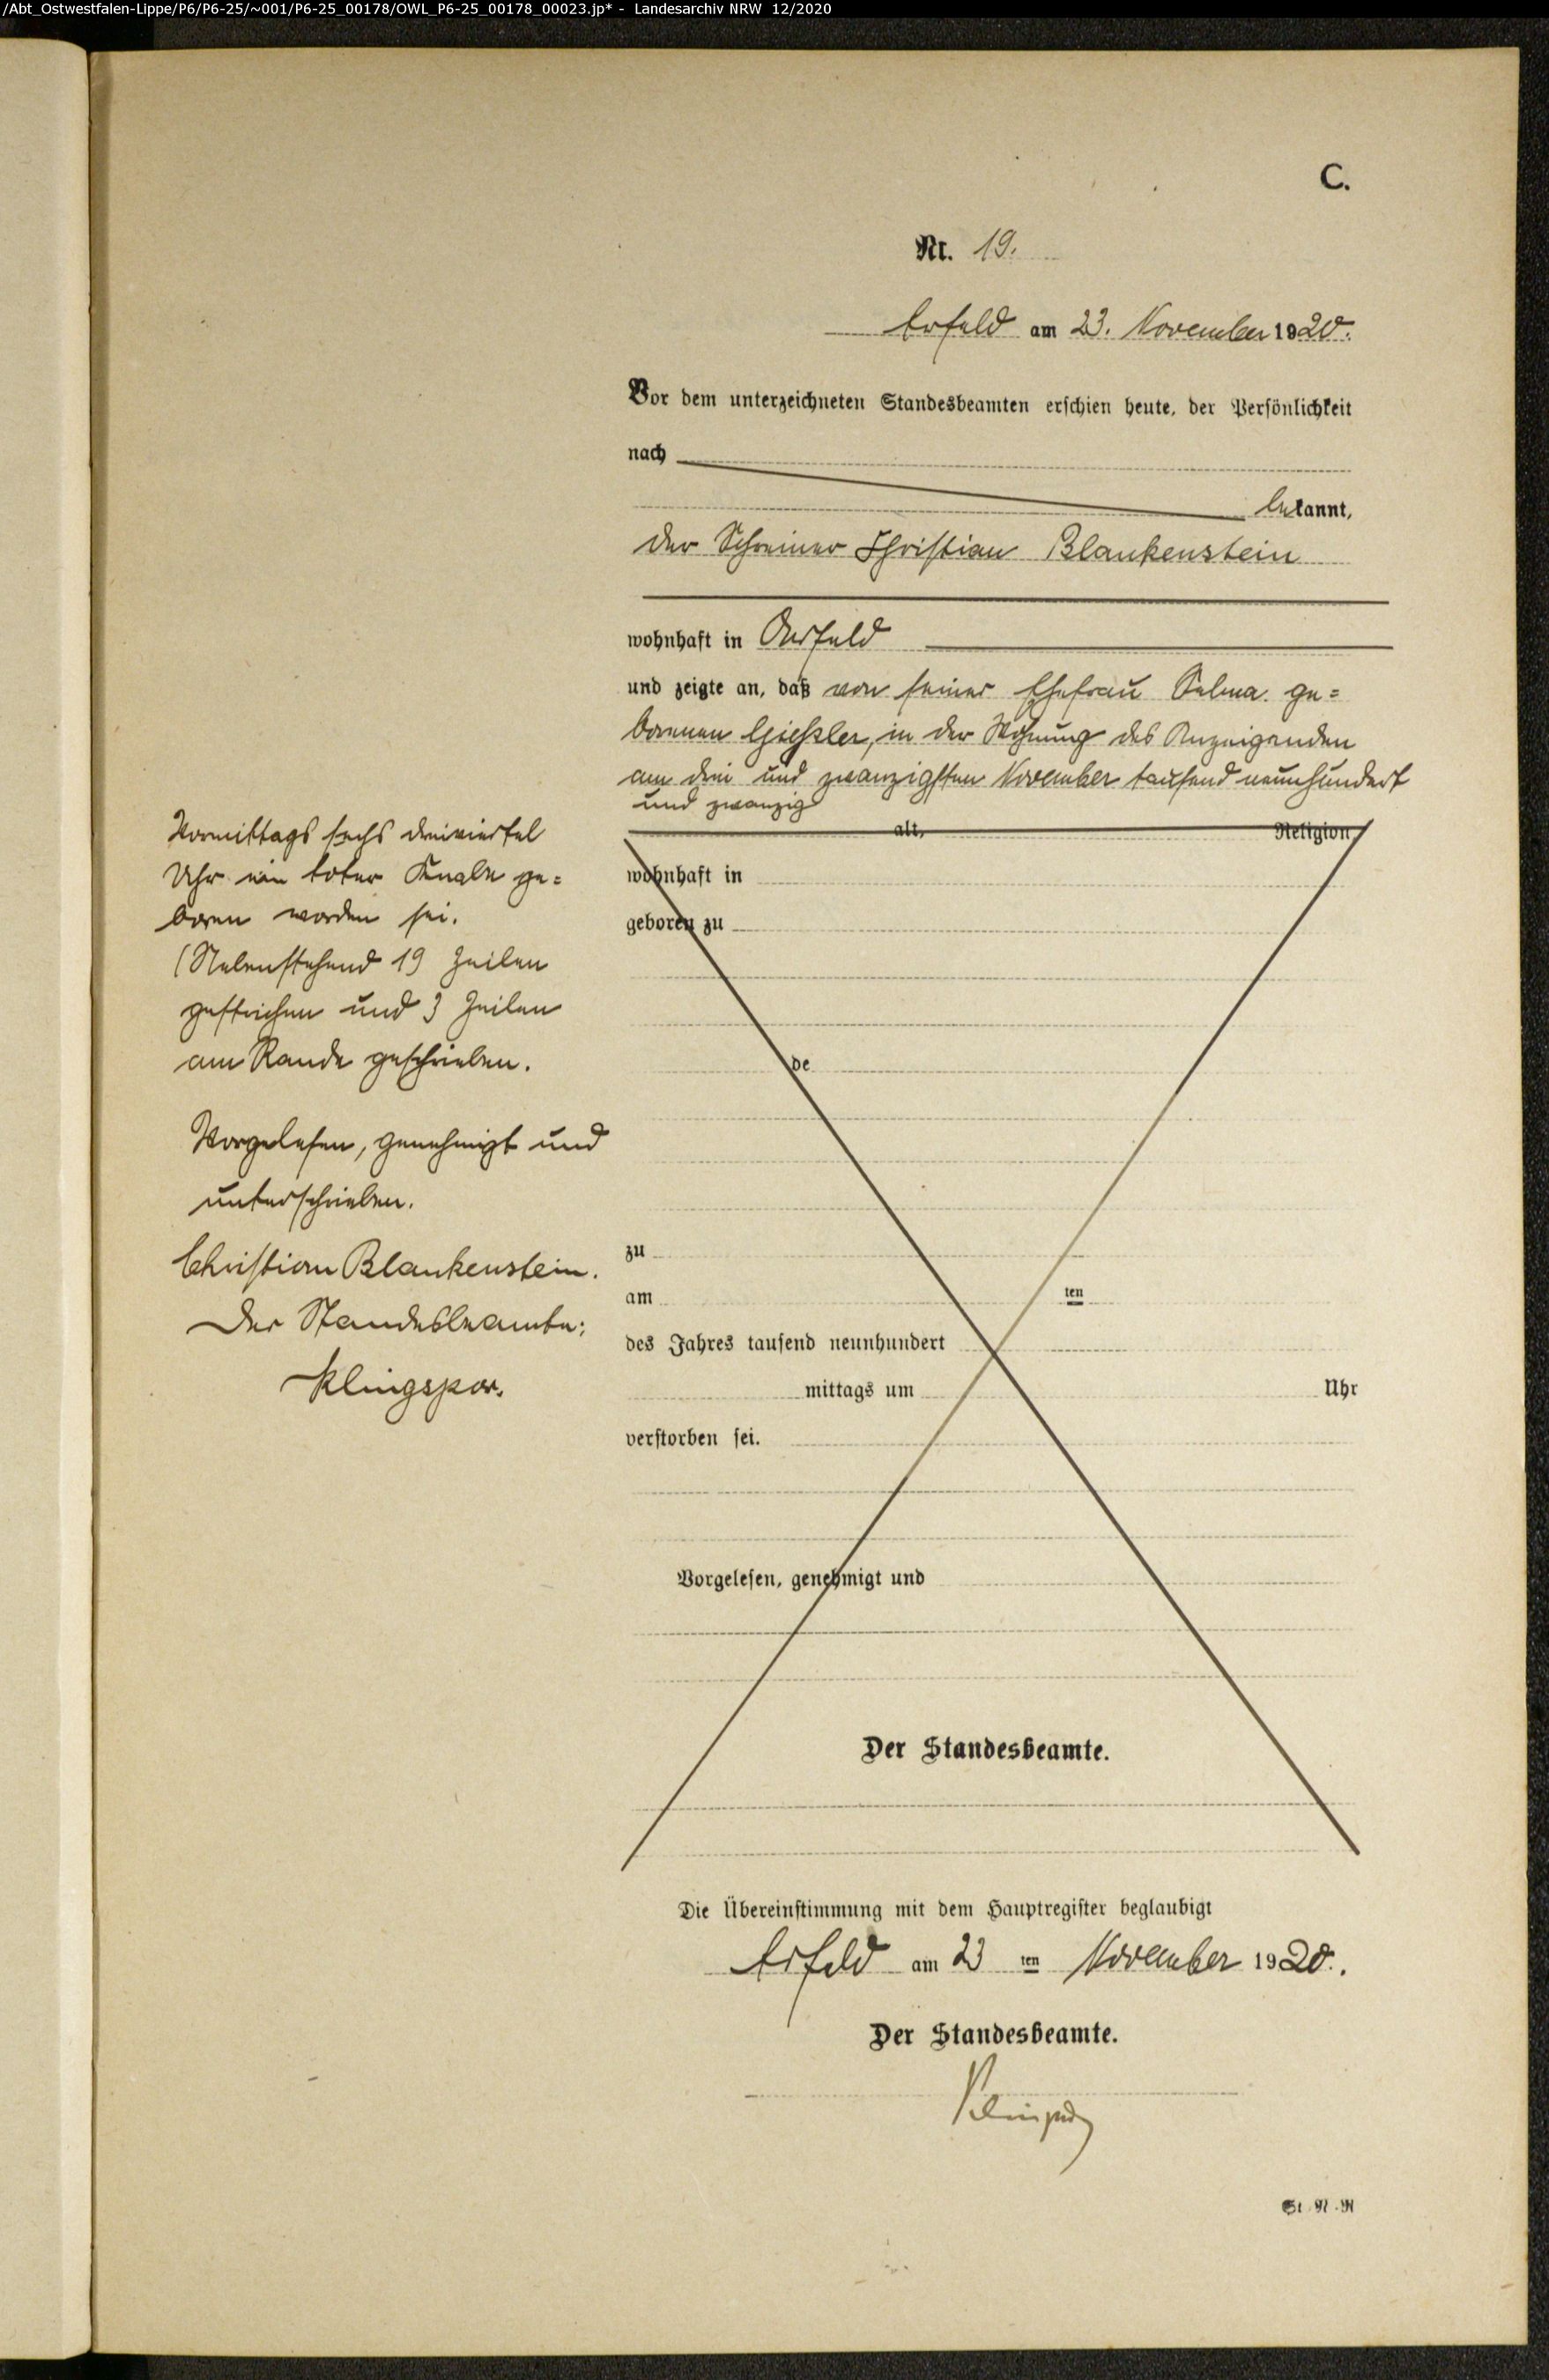 /Abt_Ostwestfalen-Lippe/P6/P6-25/~001/P6-25_00178/OWL_P6-25_00178_00023.jp* - Landesarchiv NRW 12/2020
C.
Nr. 19.
am 23. November 1920.
Vor dem unterzeichneten Standesbeamten erschien heute, der Persönlichkeit
nach
bekannt,
der Schreiner Christian Blankenstein
wohnhaft in
und zeigte an, daß von seiner Ehefrau Selma ge=
borenen Giessler, in der Wohnung des Anzeigenden
am drei und zwanzigsten November tausend neunhundert
und zwanzig
Vormittags sechs dreiviertel
Uhr ein toter Knabe ge=
boren worden sei.
(Nebenstehend 19 Zeilen
gestrichen und 3 Zeilen
am Rande geschrieben.
Vorgelesen, genehmigt und
unterschrieben.
Christian Blankenstein.
Der Standesbeamte:
Klingspor.
alt, Religion
wohnhaft in
geboren zu
de
zu
am ten
des Jahres tausend neunhundert
mittags um Uhr
verstorben sei.
Vorgelesen, genehmigt und
Der Standesbeamte.
Die Übereinstimmung mit dem Hauptregister beglaubigt
am 23 ten November 1920.
Der Standesbeamte.
Klingspor